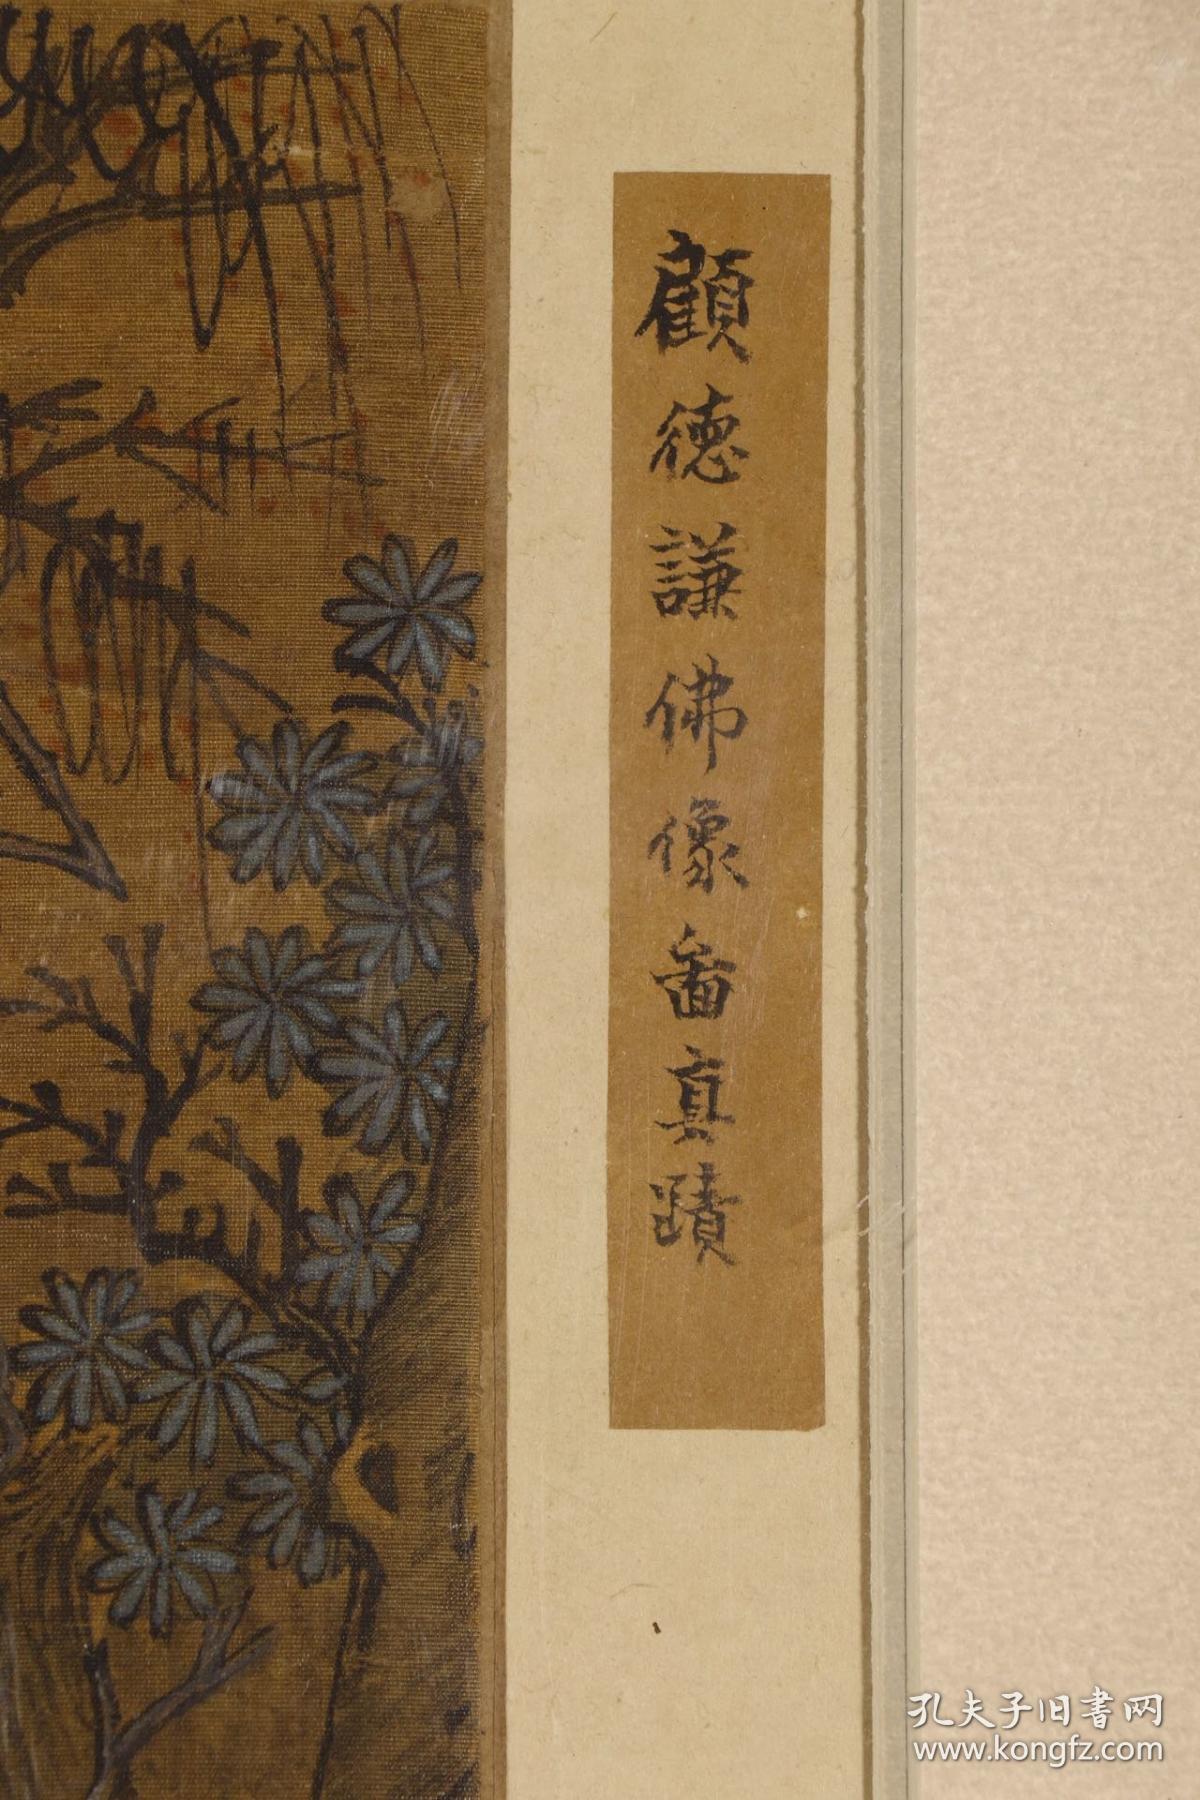 顧德謙佛像畵真蹟
孔夫子旧书网
www.kongfz.com